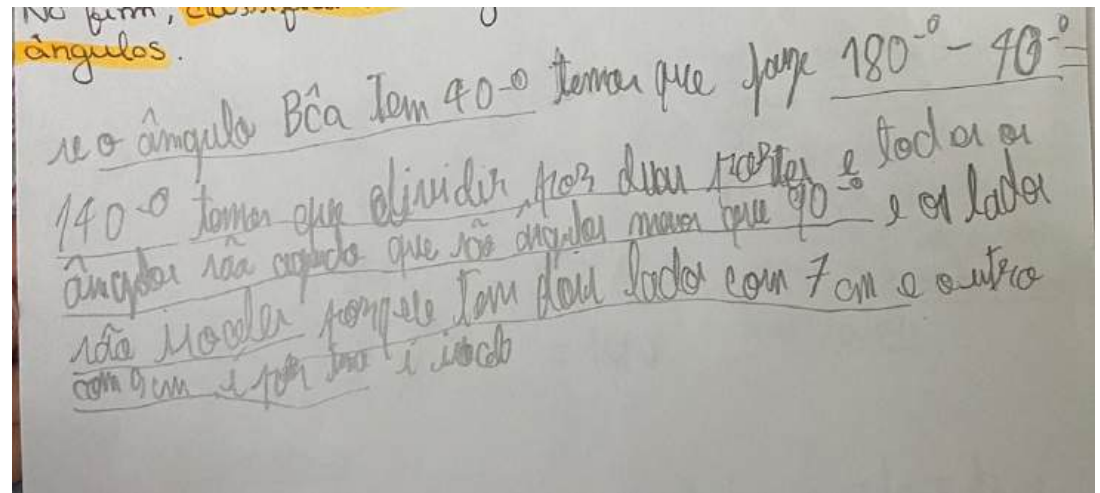 No fim,
ângulos.
se o ângulo Bĉa Tem 40-º temos que faze 180-º - 40-º =
140-º temos que dividir por duas partes e todos os
ângulos são agudo que são ângulos menor que 90-º e os lados
são porque Tem dois lados com 7 cm e outro
com 9 cm e por